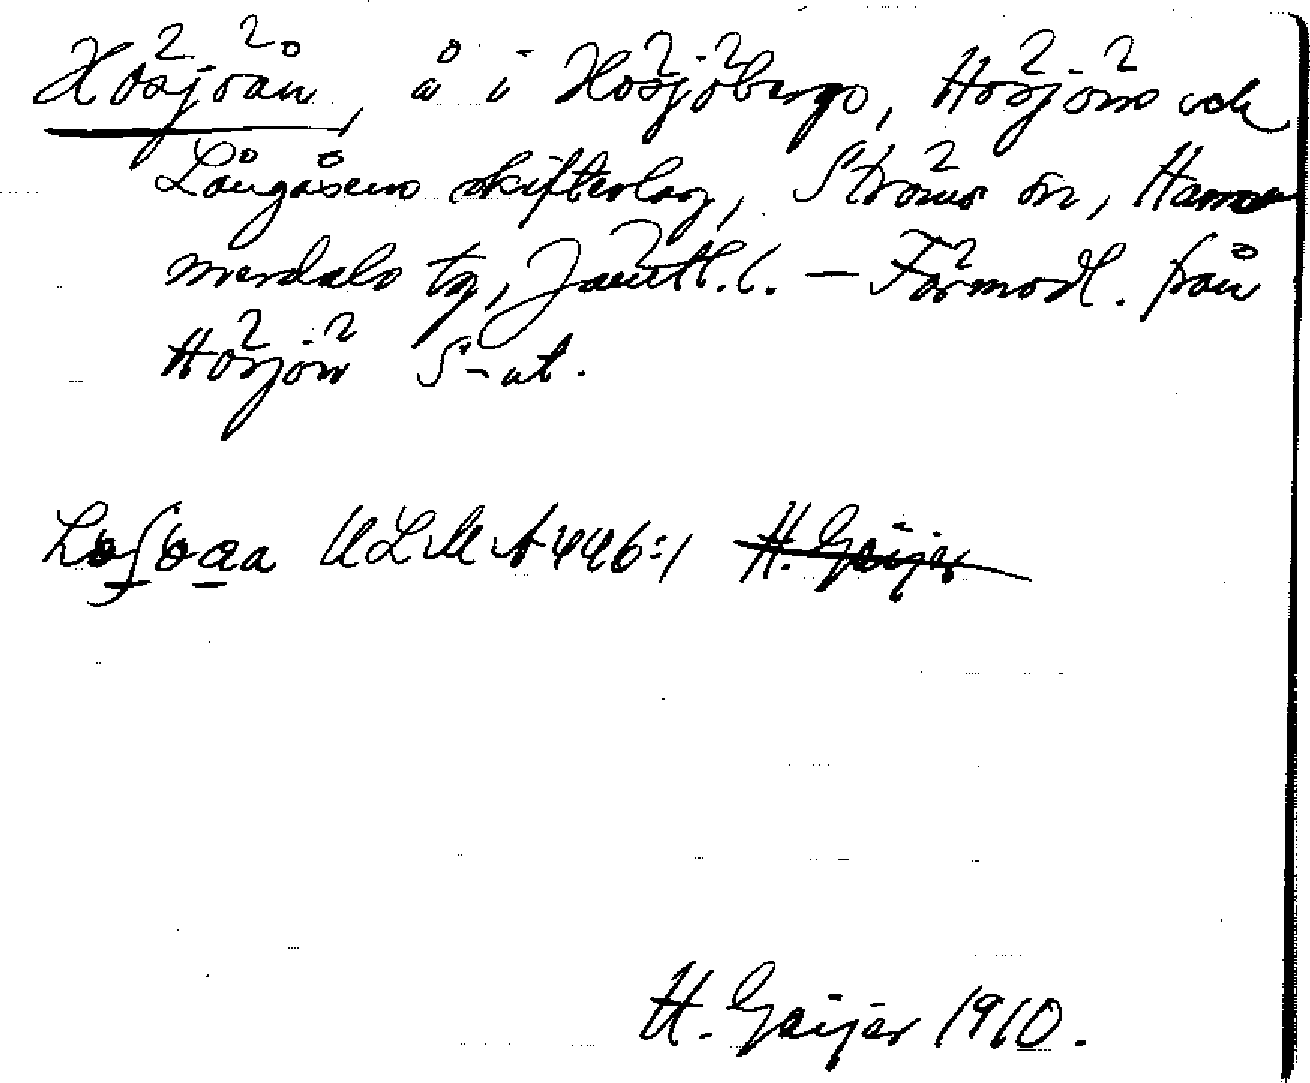 Hösjöån, å i Hösjöbergs, Hösjöns och
Långåsens skifteslag, Ströms sn, Ham-
merdals tg, Jämtl. l. — Förmodl. från
Hösjön S-ut.
ULMA 446:1 H. Geijer
H. Geijer 1910.